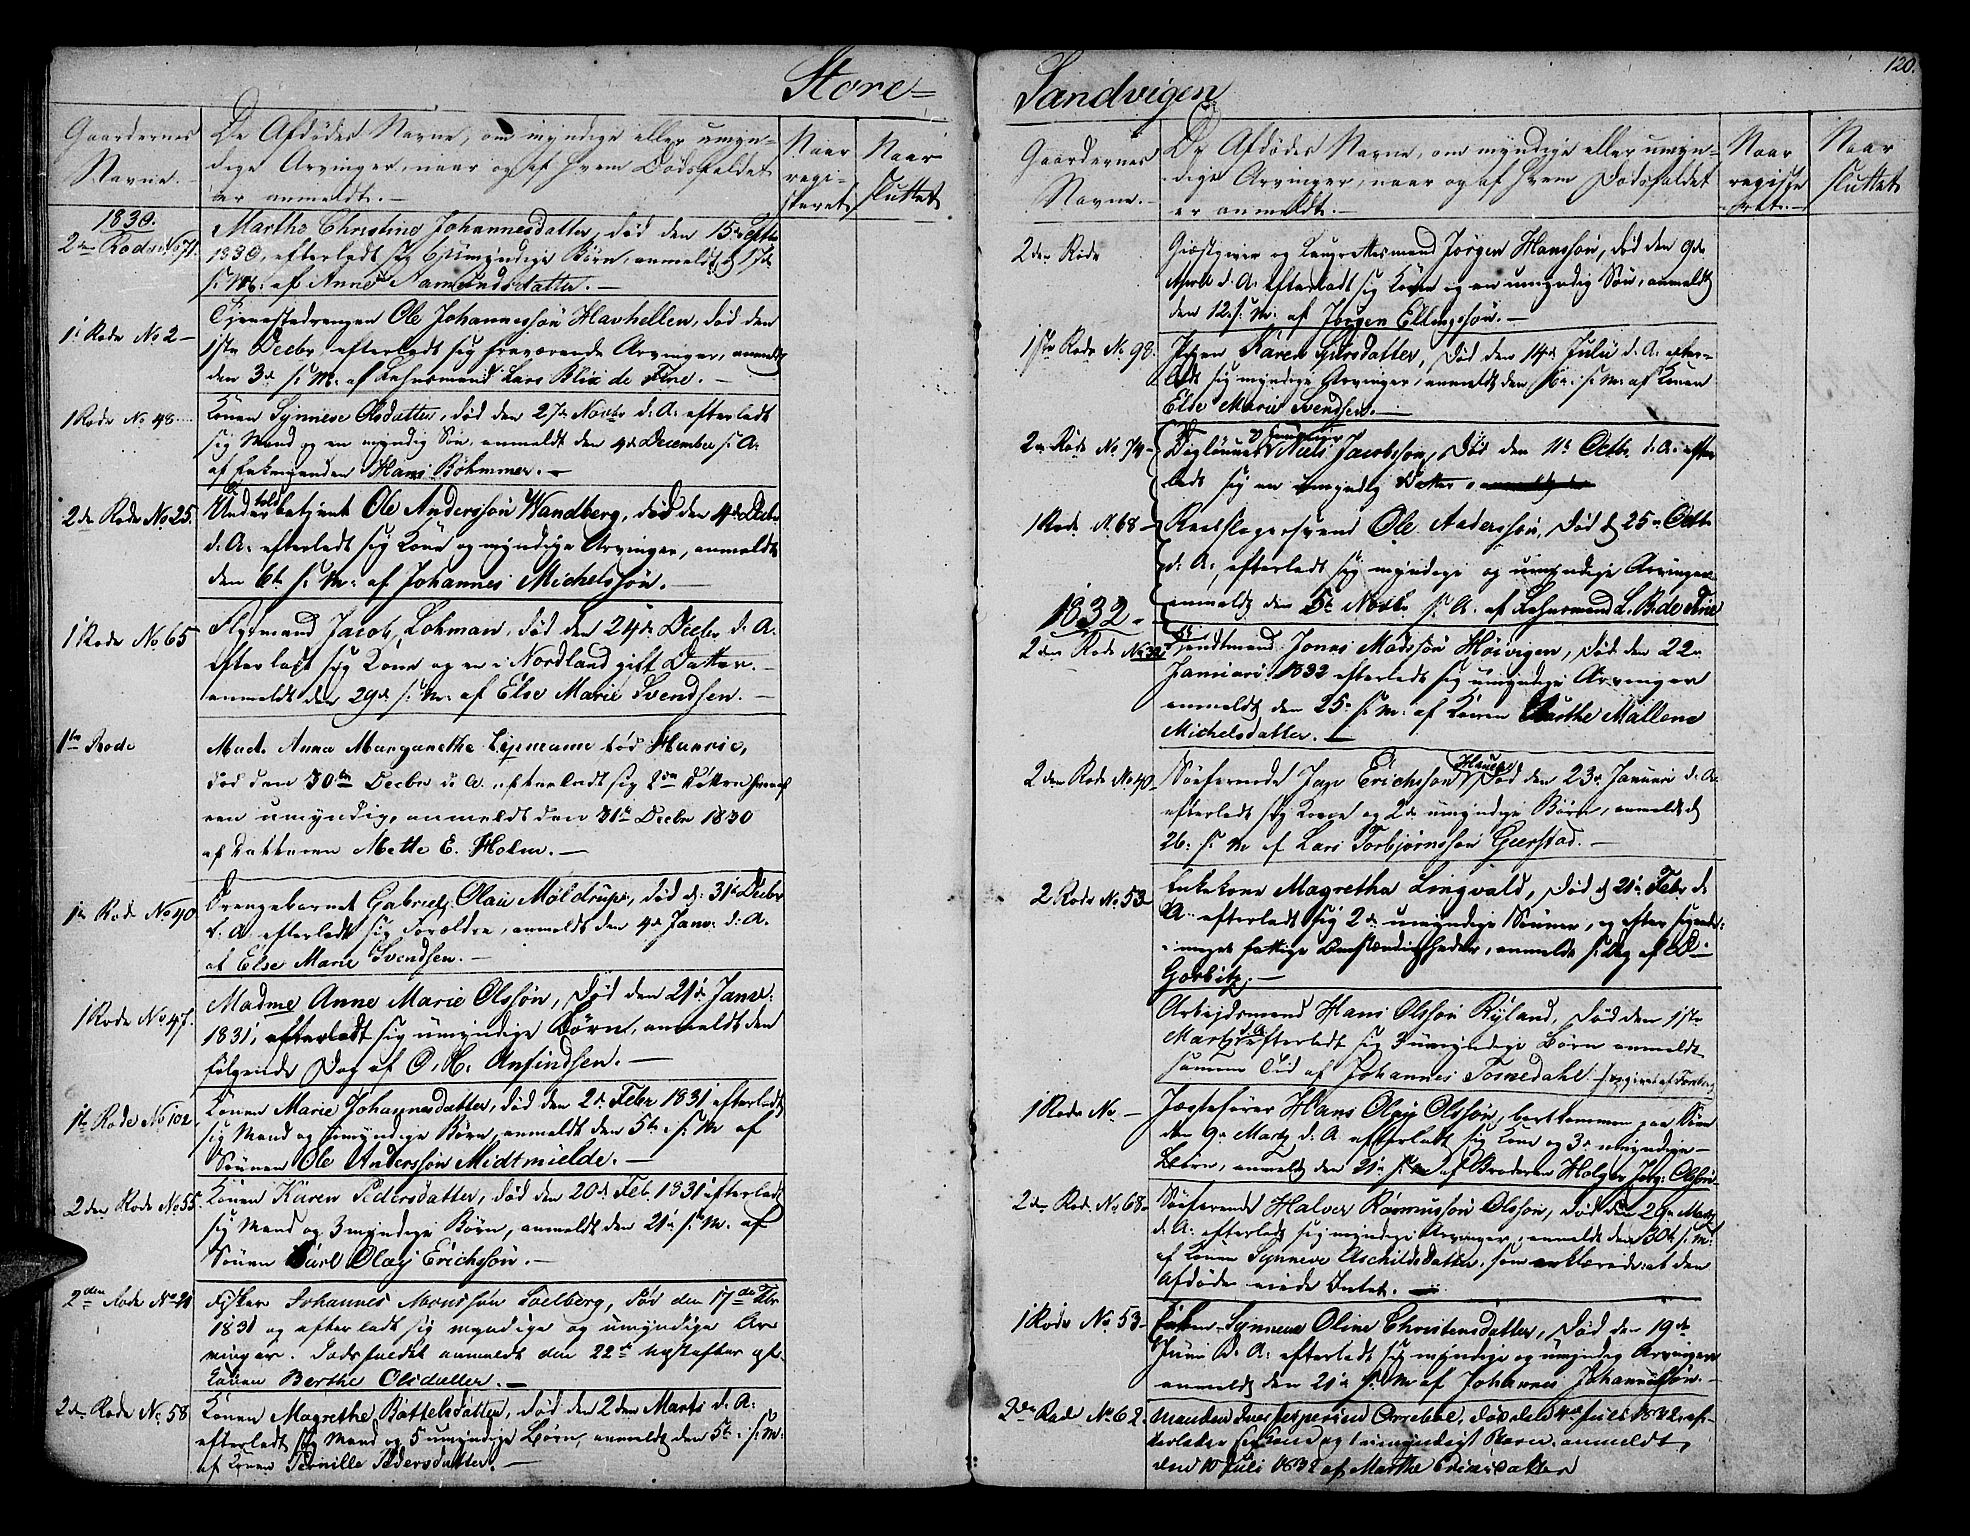 Store=
Gaardernes
Navne.
De Afdødes Navne, om myndige eller umyn=
dige Arvinger, naar og af hvem Dødsfaldet
er anmeldt.
Naar
regi-
streret
Naar
sluttet
1830.
2den Rode No 71.
Marthe Christine Johannesdatter, død den 15de Septbr
1830, efterladt sig umyndige Børn, anmeldt
s. M. af Anne Aamundsdatter.
1ste Rode No 2
Tjenestedrengen Ole Johannessøn Havhellen, død den
1ste Decbr, efterladt sig fraværende Arvinger, anmeldt
den 3de s. M. af Lehnsmand Lars Blix de Fine.
1 Rode No 48
Konen Synneve Olsdatter, død den 27de Novbr d. A. efterladt
sig Mand og en myndig Søn, anmeldt den 4de December s. A.
af Enkemanden Hans Bøhmmer.
2den Rode No 25.
Undertoldbetjent Ole Anderssøn Wandberg, død den 4de Decbr
d. A. efterladt sig Kone og myndige Arvinger, anmeldt
den 6te s. M. af Johannes Michelssøn.
1ste Rode No 65
Jacob Lohman, død den 24de Decbr d. A.
efterladt sig Kone og en i Nordland gift Datter.
anmeldt den 29de s. M. af Else Marie Svendsen.
1ste Rode
Mad. Anna Margarethe Lipmann fød Hanrie,
død den 30te Decbr d. A. efterladt sig 2de Døttre hvoraf
een umyndig, anmeldt den 31te Decbr 1830
af Datteren Mette E. Holm.
1ste Rode No 40
Drengebarnet Gabriel Olai Møldrup, død d. 31te Decbr
f. A. efterladt sig Forældre, anmeldt den 4de Janv. d. A.
af Else Marie Svendsen.
1 Rode No 47.
Madme Anne Marie Olssøn, død den 21de Janv.
1831, efterladt sig umyndige Børn, anmeldt den
følgende Dag af C. H. Anfindsen.
1ste Rode No 102
Konen Marie Johannesdatter, død den 2de Febr 1831 efterladt
sig Mand og umyndige Børn, anmeldt den 5te s. M af
Sønnen Ole Anderssøn Midtmielde.
2den Rode No 55.
Konen Karen Pedersdatter, død den 20de Feb. 1831 efterladt
sig Mand og 3 myndige Børn, anmeldt den 21de s. M. af
Sønnen Carl Olay Erichssøn.
2den Rode No 21
Fisker Johannes Monssøn Soelberg, død den 17de Fbr
1831 og efterladt sig myndige og umyndige Ar
vinger. Dødsfaldet anmeldt den 22de næstefter af
Konen Berthe Olsdatter.
2den Rode No 58
Konen Magrethe Bottelsdatter, død den 2den Marts d. A.
efterladt sig Mand og 5 umyndige Børn, anmeldt den 5te s. M.
af Konen Pernille Pedersdatter.
Sandvigen
120.
Gaardernes
Navne.
De Afdødes Navne, om myndige eller umyn=
dige Arvinger, naar og af hvem Dødsfaldet
er anmeldt.
Naar
registe
ret
Naar
sluttet
2den Rode
Giæstgiver og Laugrettesmand Jørgen Hanssøn, død den 9de
April d. A. efterladt sig Kone og en umyndig Søn, anmeldt
den 12. s. M. af Jørgen Ellingssøn.
1ste Rode No 98.
Karen Larsdatter, død den 14de Julii d. A. efter=
ladt sig myndige Arvinger, anmeldt den s. M. af Konen
Else Marie Svendsen.
2den Rode No 74
Daglønner Niels Jacobsson, død den 11te Octbr. d. A. efter
ladt sig en umyndig Datter
1 Rode No 68
Rebslagersvend Ole Anderssøn, død d. 25de Octbr
d. A., efterladt sig myndige og umyndige Arvinger
anmeldt den 5te Novbr s. A. af Lehnsmand L. B. de Fine
1832
2den Rode No 32
Jonas Madssøn Høivigen, død den 22de
Januari 1832 efterladt sig umyndige Arvinger
anmeldt den 25de s. M. af Konen Marthe Mallene
Michelsdatter.
2den Rode No 40
Søefarende Jan Erichsson Hauch, død den 23de Januari d. A.
efterladt sig Kone og 2de umyndige Børn, anmeldt d.
26. s. M af Lars Torbjørnssøn Gierstad.
2 Rode No 53
Enkekone Magretha Lingvald, død d. 21de Febr d.
A. efterladt sig 2de umyndige Sønner, og efter sigende
i meget fattige Omstændigheder, anmeldt s. Dag af D.
Gorbitz.
Arbeidsmand Hans Olssøn Ryland, død den 1ste
Marts d. A. efterladt sig 3 umyndige Børn anmeldt
samme Tid af Johannes Tosnedahl
1 Rode No
Jægtefører Hans Olay Olssøn, bortkommen paa Søen
den 9de Marts d. A. efterladt sig Kone og 3de umyndige
Børn, anmeldt den 21de s. M af Broderen Holger Jørg. Olssøn
2den Rode No 68
Søefarende Halvor Rasmussøn Olssøn, død den 29de Marts
d. A. efterladt sig myndige Arvinger, anmeldt den 30te s. M.
af Konen Synneve Aschildsdatter, som erklærede at den
Afdøde eiede Intet.
1 Rode No 53
Synneve Oline Christensdatter, død den 19de
Juni d. A. efterladt sig myndige og umyndig Arvinger
anmeldt den 21de s. M af Johannes Johannessøn.
2den Rode No 62.
Manden Jespersen Orrebak, død den 4de Juli 1832, ef-
terladt sig Kone og 1 umyndigt Barn, anmeldt
den 10 Juli 1832 af Marthe Ericsdatter